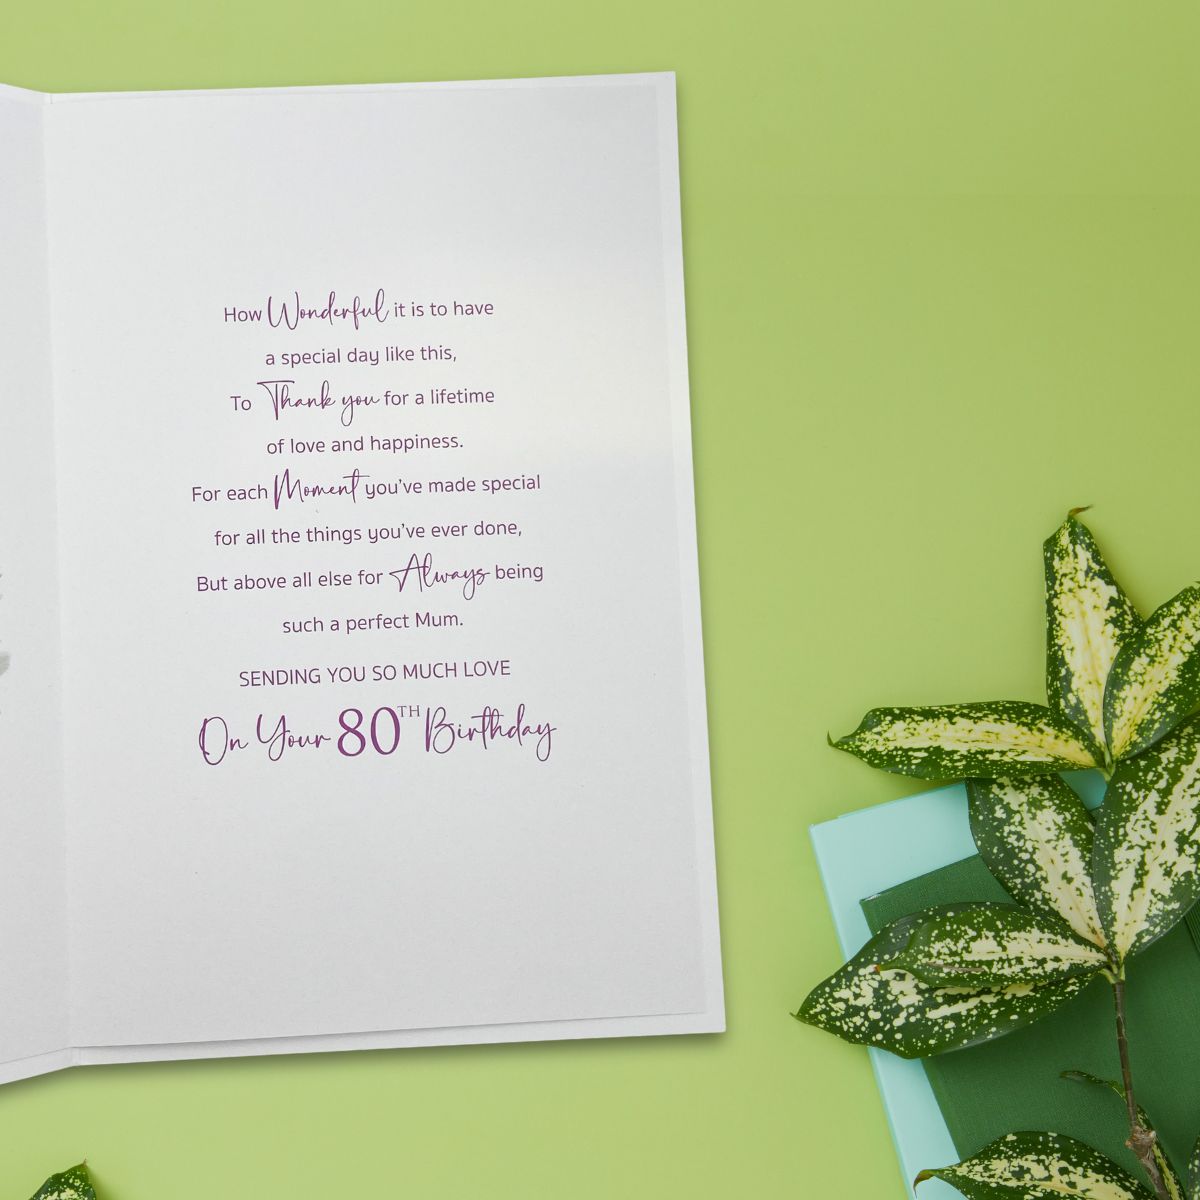 How Wonderful it is to have
a special day like this,
To Thank you for a lifetime
of love and happiness.
For each Moment you've made special
for all the things you've ever done,
But above all else for Always being
such a perfect Mum.
SENDING YOU SO MUCH LOVE
On Your 80TH Birthday